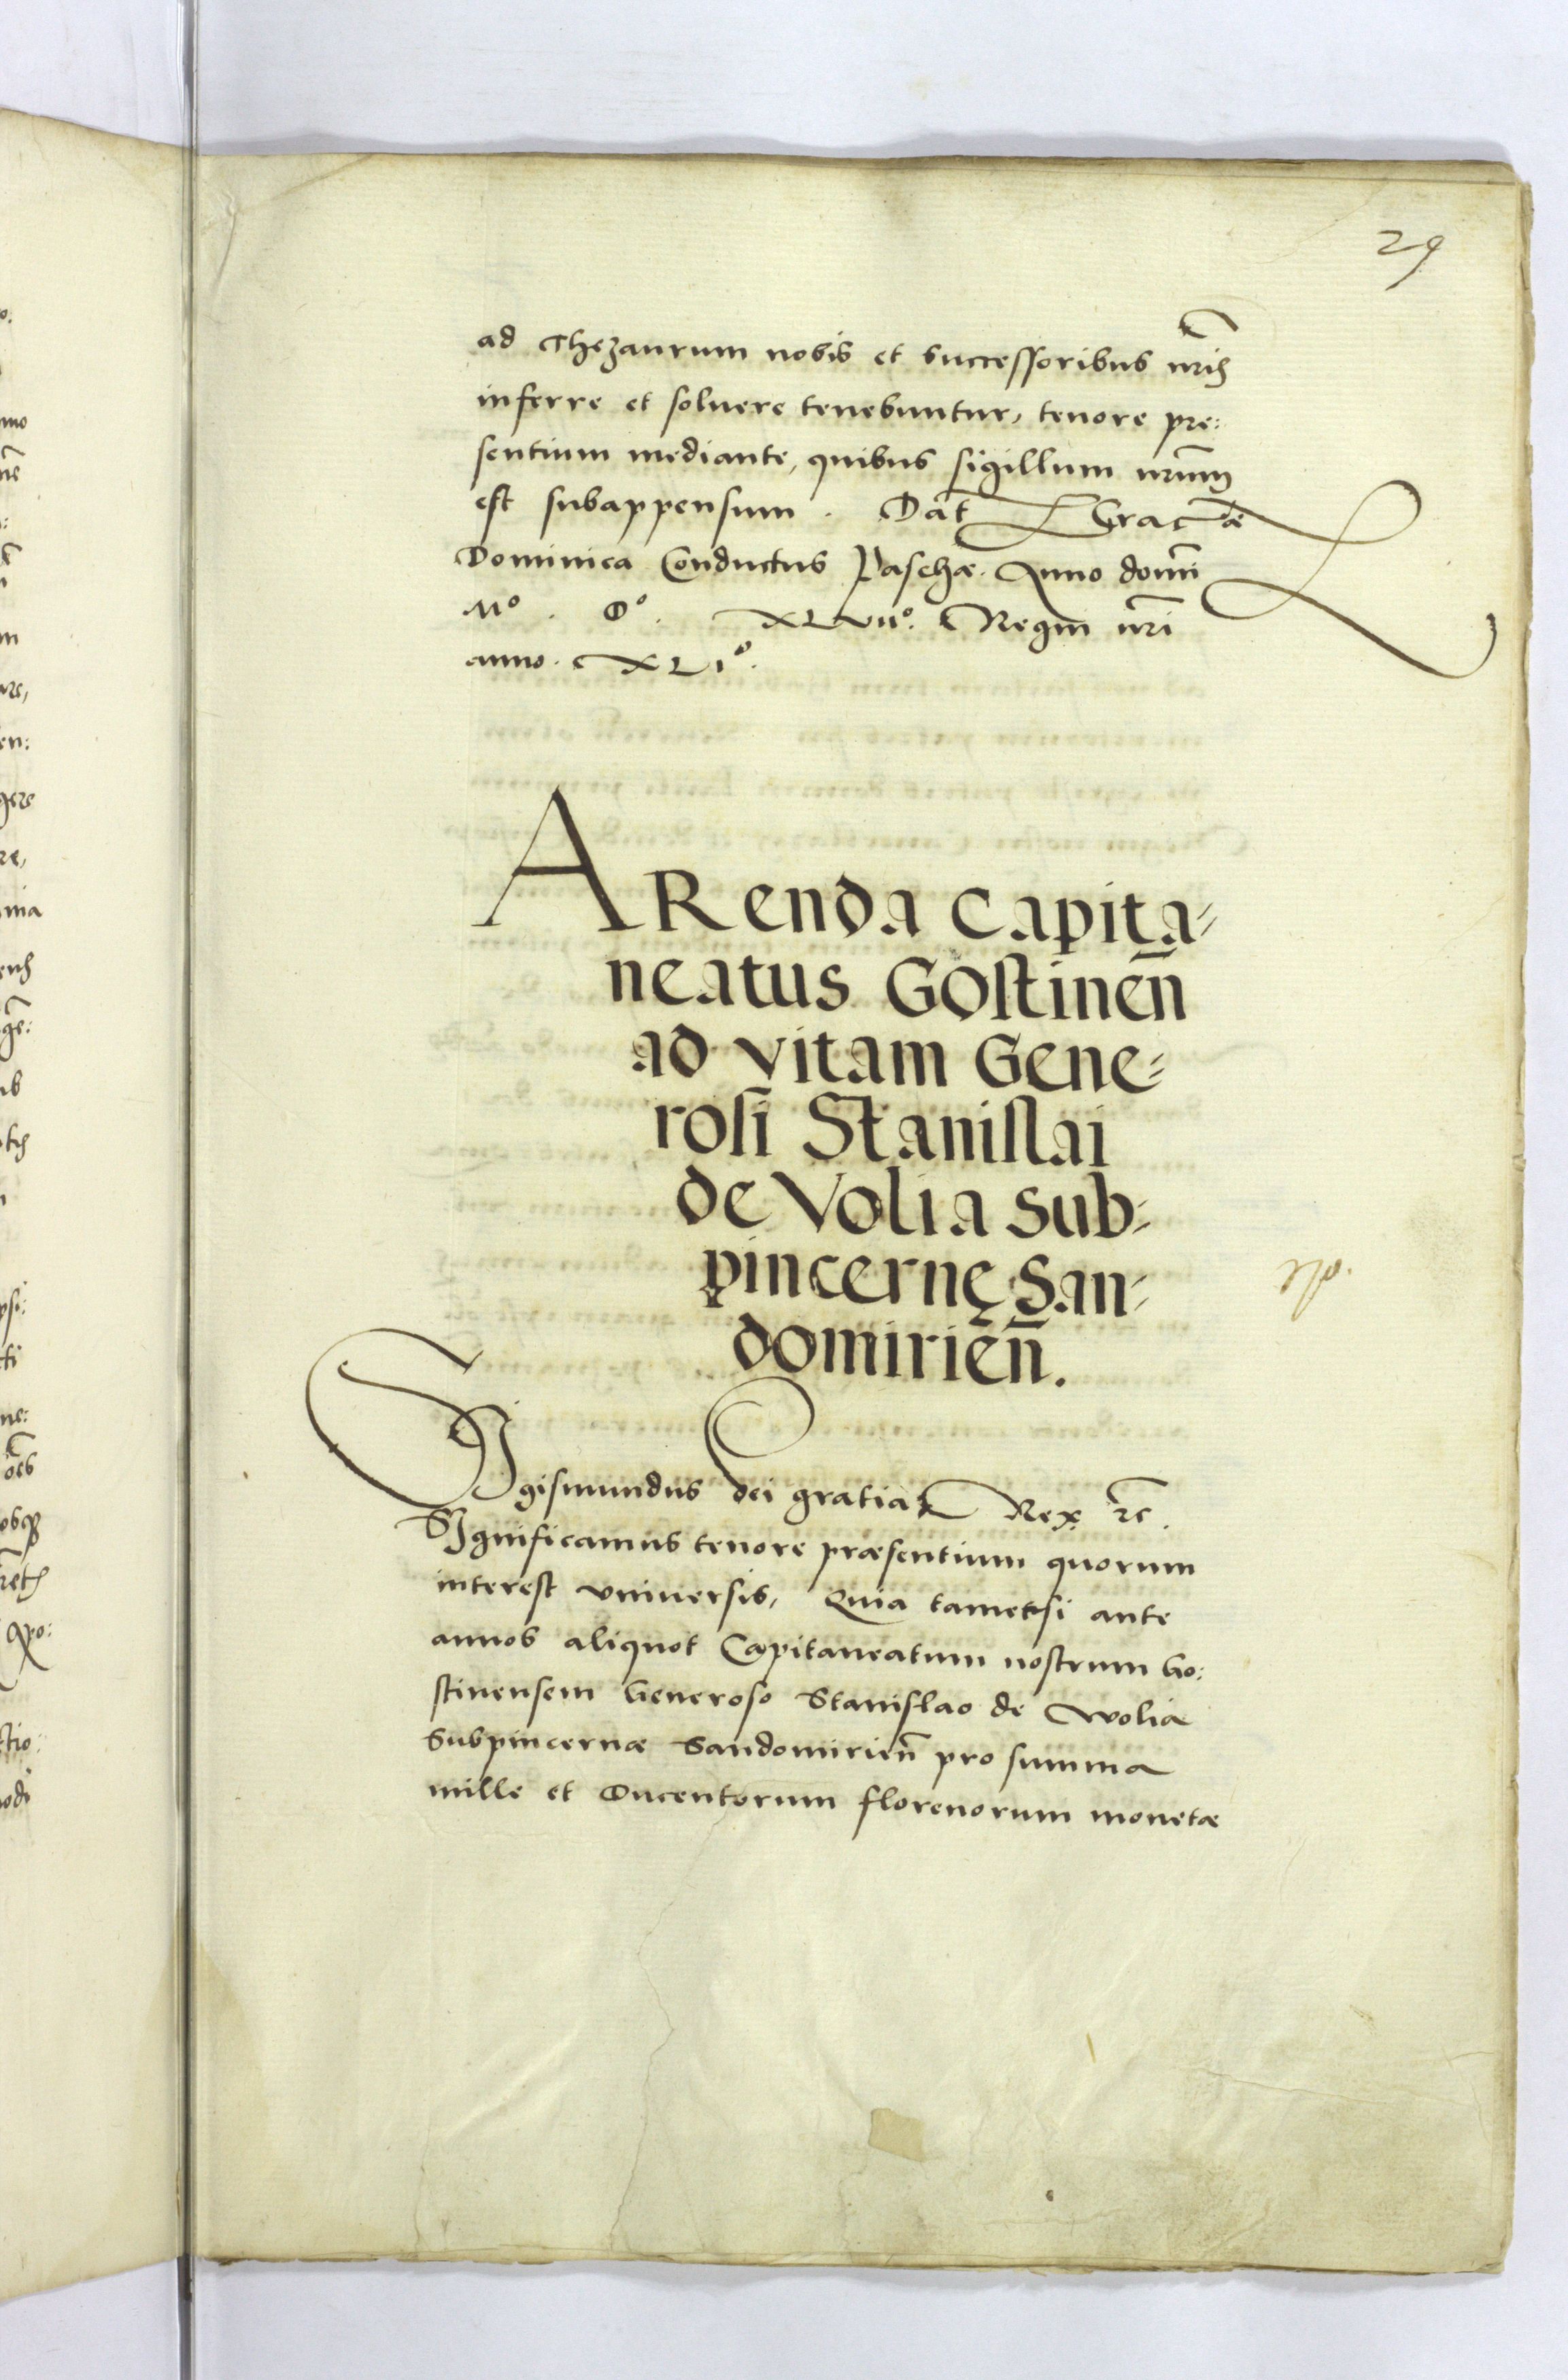 29
ad Thezaurum nobis et successoribus nr̃is
inferre et soluere tenebuntur, tenore pre:
sentium mediante, quibus sigillum nr̃um
est subappensum. Dat̃ Craciæ
Dominica Conductus Paschæ. Anno domĩ
Mº. Dº. XLVIIº. Regni nr̃i
anno. XLIº.
ARenda Capita=
neatus Gostineñ
ad vitam Gene=
rosi Stanislai
de Volia Sub=
pincernę San=
domirieñ.
SIgismundus Dei gratia Rex ⁊c̃.
Significamus tenore præsentium quorum
interest vniuersis, Quia tametsi ante
annos aliquot Capitaneatum nostrum Go:
stinensem Generoso Stanislao de Wolia
Subpincernæ Sandomirień pro summa
mille et Ducentorum florenorum monetæ